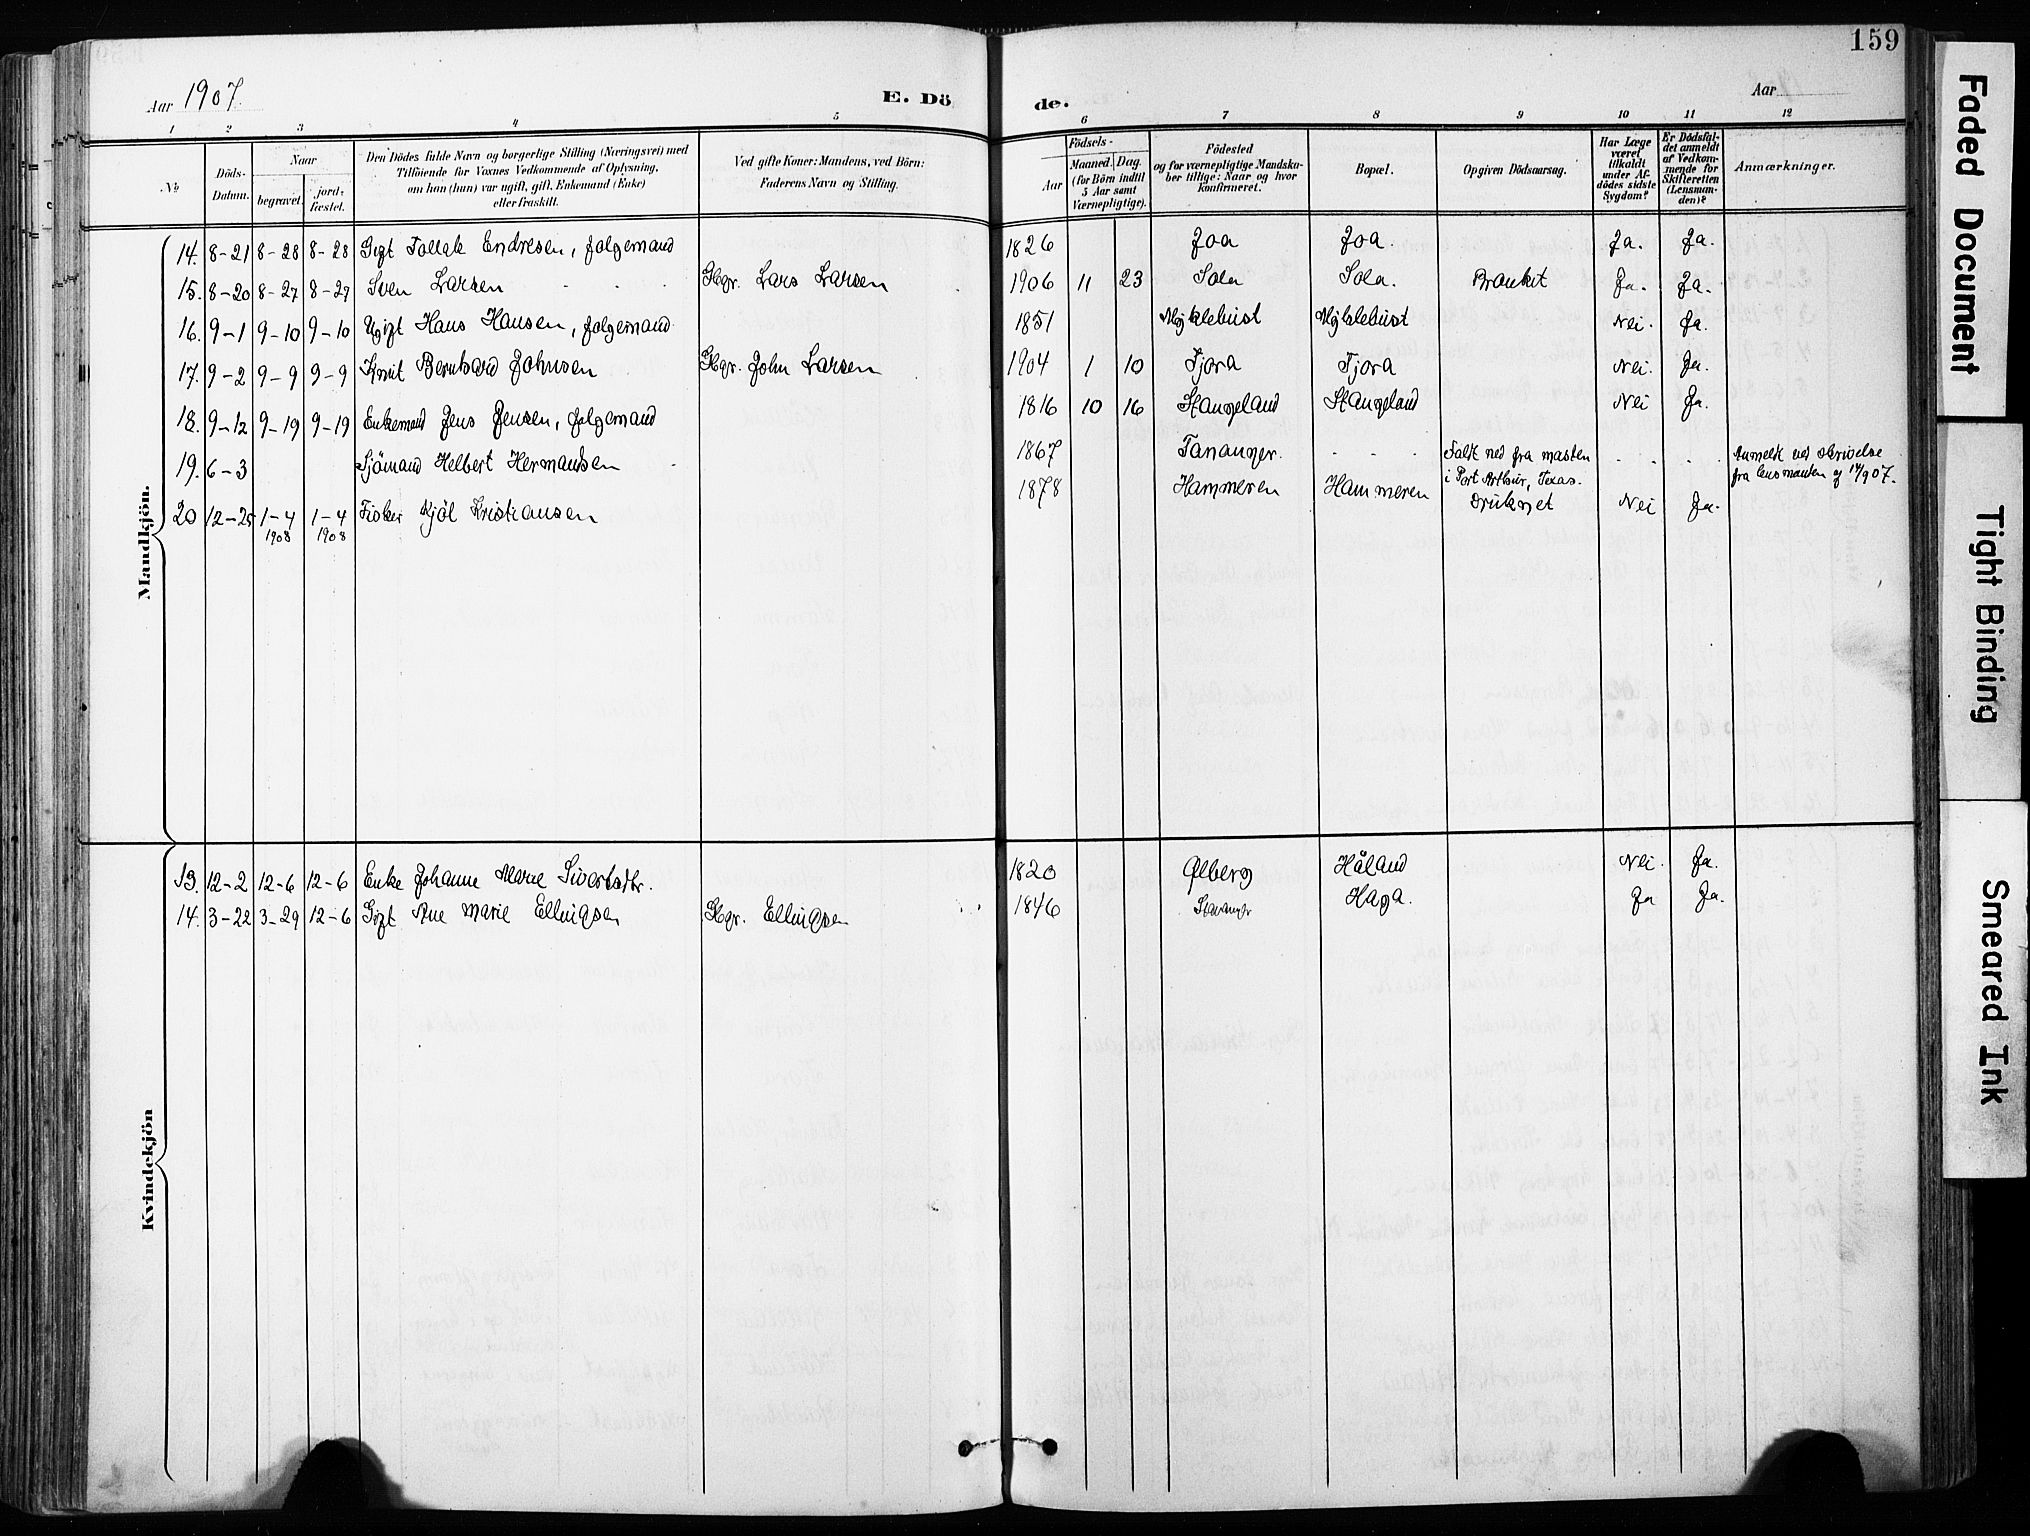 159
Aar 1907.
E. Dö
de.
Aar
1 2 3 4 5 6 7 8 9 10 11 12
No
Döds-Datum.
Naar
begravet.
jord-fæstet.
Den Dödes fulde Navn og borgerlige Stilling (Næringsvei) med
Tilföiende for Voxnes Vedkommende af Oplysning,
om han (hun) var ugift, gift, Enkemand (Enke)
eller fraskilt.
Ved gifte Koner: Mandens, ved Börn:
Faderens Navn og Stilling.
Födsels-
Aar
Maaned. Dag.
(for Börn indtil
5 Aar samt
Værnepligtige).
Födested
og for værnepligtige Mandska-
ber tillige: Naar og hvor
konfirmeret.
Bopæl.
Opgiven Dödsaarsag.
Har Læge
været
tilkaldt
under Af-
dödes sidste
Sygdom?
Er Dödsfal-
det anmeldt
af Vedkom-
mende for
Skifteretten
(Lensman-
den)?
Anmærkninger.
Mandkjön.
14. 8-21 8-28 8-28 Gift Tollak Endresen, folgemand 1826 Joa Joa. Ja. Ja.
15. 8-20 8-27 8-27 Sven Larsen Gbgr. Lars Larsen 1906 11 23 Sola Sola. Bronkit Ja. Ja.
16. 9-1 9-10 9-10 Ugift Hans Hansen, folgemand 1851 Myklebust Myklebust Nei. Ja.
17. 9-2 9-9 9-9 Knut Bernhard Johnsen Gbgr. John Larsen 1904 1 10 Tjora Tjora Nei. Ja.
18. 9-12 9-19 9-19 Enkemand Jens Jensen, folgemand 1816 10 16 Stangeland Stangeland Nei Ja.
19. 6-3 Sjömand Helbert Hermansen 1867 Tananger. - - - Faldt ned fra masten
i Port Arthur, Texas. - - - - Anmeldt ved skrivelse
fra lensmanden
20 12-25 1-4 1908 1-4 1908 Fisker Kjöl Kristiansen 1878 Hammeren Hammeren Druknet Nei Ja.
Kvindekjön
13. 12-2 12-6 12-6 Enke Johanne Marie Sivertsdtr. 1820 Ølberg Håland Nei. Ja.
14. 3-22 3-29 12-6 Gift Ane Marie Ellingsen Gbgr. Ellingsen 1846 Stavanger Haga. Ja Ja.
Faded Document
Tight Binding
Smeared Ink